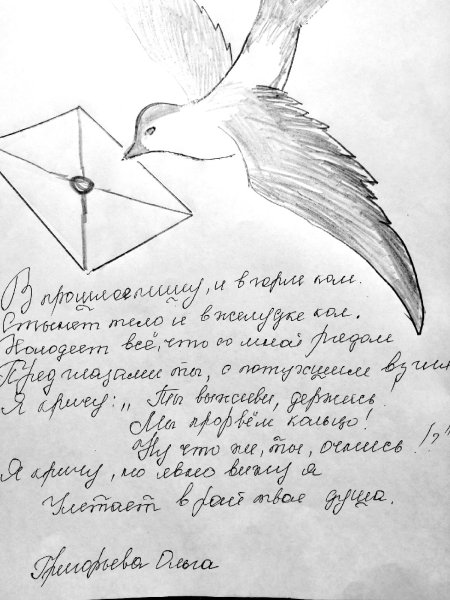 В прошлое пишу, и в горле ком.
Стынет тело и в желудке кол.
Холодеет всё, что со мной рядом
Пред глазами ты, с потухшим взгля
Я кричу: „ Ты выживи, держись.
Мы прорвём кольцо!
Ну что же, ты, очнись!?"
Я кричу, но явно вижу я
Улетает в рай твоя душа.
Григорьева Ольга